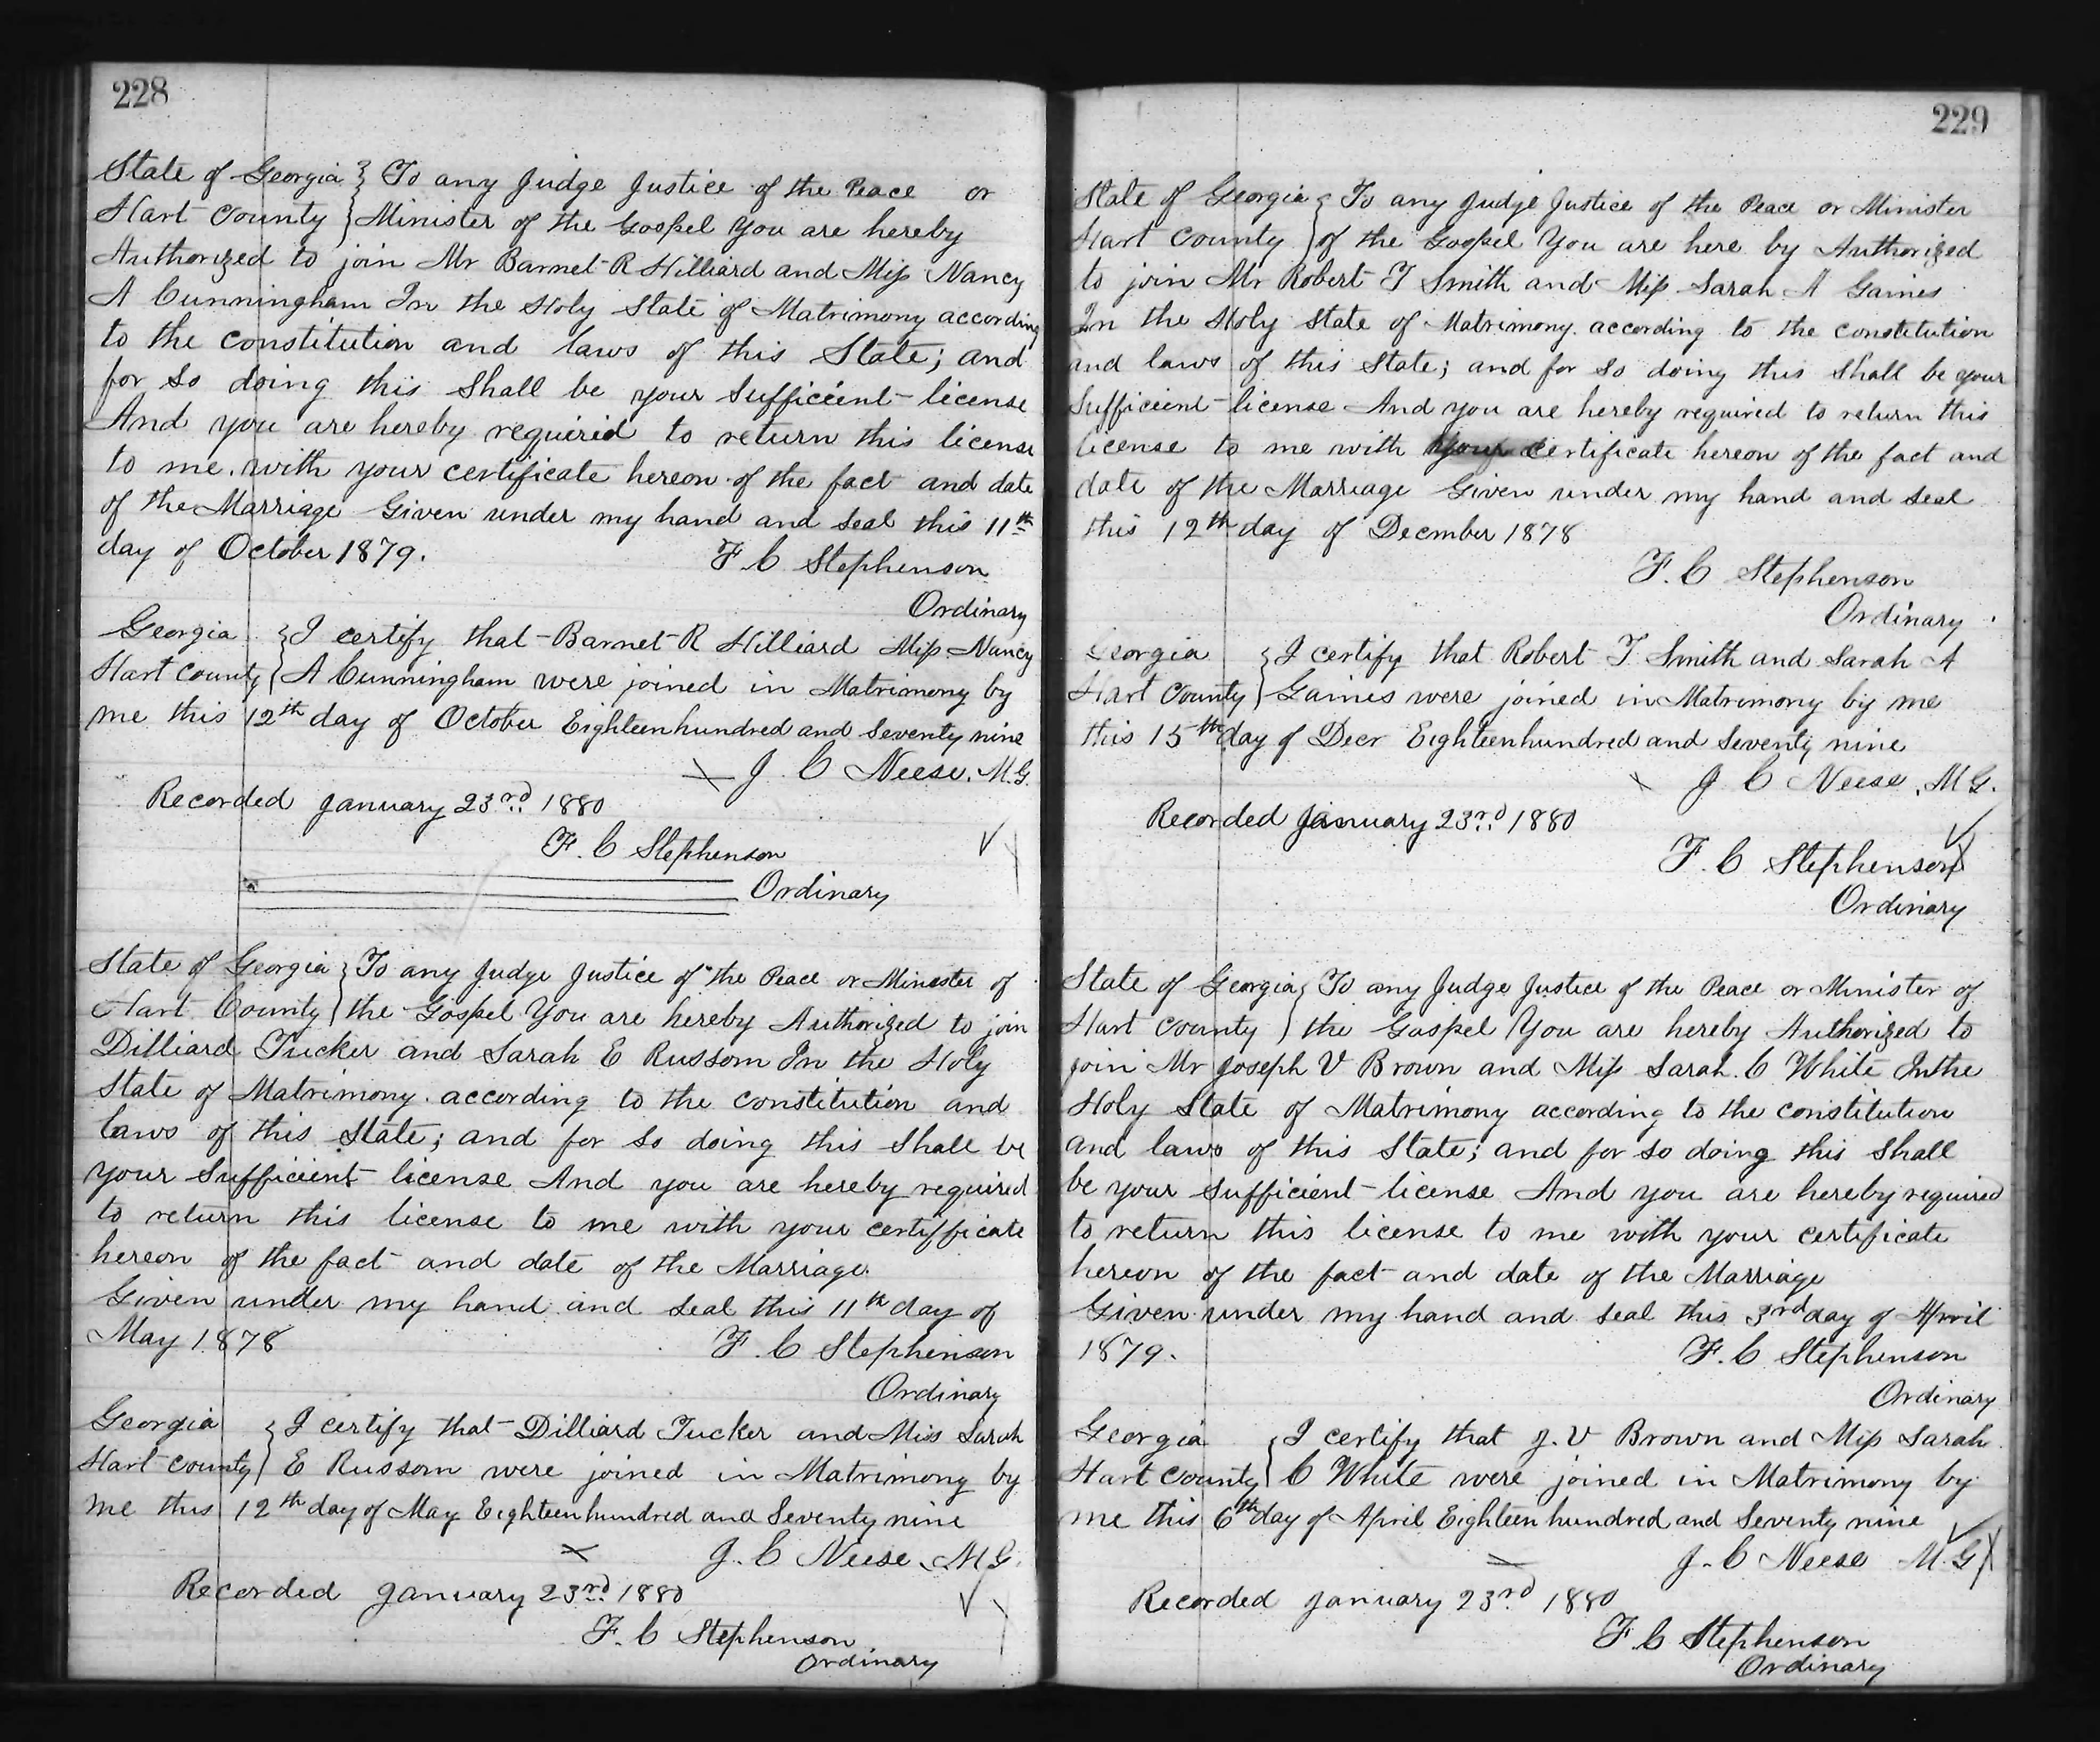 228
State of Georgia } To any Judge Justice of the Peace or
Hart County } Minister of the Gospel You are hereby
Authorized to join Mr Barnet R Hilliard and Miss Nancy
A Cunningham In the Holy State of Matrimony according
to the constitution and laws of this State; and
for so doing this Shall be your Sufficient license
And you are hereby required to return this license
to me with your certificate hereon of the fact and date
of the Marriage Given under my hand and seal this 11th
day of October 1879.
F. C Stephenson
Ordinary
Georgia } I certify that Barnet R Hilliard Miss Nancy
Hart County } A Cunningham were joined in Matrimony by
me this 12th day of October Eighteen hundred and Seventy nine
J. C Neese. M.G.
Recorded January 23rd 1880
F. C Stephenson
Ordinary
State of Georgia } To any Judge Justice of the Peace or Minester of
Hart County } the Gospel You are hereby Authorized to join
Dilliard Tucker and Sarah E Russom In the Holy
State of Matrimony according to the constitution and
laws of this State; and for so doing this Shall be
your Sufficient license And you are hereby required
to return this license to me with your certifficate
hereon of the fact and date of the Marriage.
Given under my hand and seal this 11th day of
May 1878
F. C Stephenson
Ordinary
Georgia } I certify that Dilliard Tucker and Miss Sarah
Hart County } E Russom were joined in Matrimony by
me this 12th day of May Eighteen hundred and Seventy nine
J. C Neese. M G.
Recorded January 23rd 1880
F. C Stephenson
Ordinary
229
State of Georgia } To any Judge Justice of the Peace or Minister
Hart County } of the Gospel You are here by Authorized
to join Mr Robert T Smith and Miss Sarah A Gaines
In the Holy State of Matrimony according to the constitution
and laws of this State; and for so doing this Shall be your
Sufficient license And you are hereby required to return this
license to me with your certificate hereon of the fact and
date of the Marriage Given under my hand and seal
this 12th day of Decmber 1878
F. C Stephenson
Ordinary
Georgia } I certify that Robert T Smith and Sarah A
Hart County } Gaines were joined in Matrimony by me
this 15th day of Decr Eighteen hundred and Seventy nine
J C Neese. M G.
Recorded January 23rd 1880
F. C Stephenson
Ordinary
State of Georgia } To any Judge Justice of the Peace or Minister of
Hart County } the Gospel You are hereby Authorized to
join Mr Joseph V Brown and Miss Sarah. C White In the
Holy State of Matrimony according to the constitution
and laws of this State; and for so doing this Shall
be your Sufficient license And you are hereby required
to return this license to me with your certificate
hereon of the fact and date of the Marriage
Given under my hand and seal this 3rd day of April
1879.
F. C Stephenson
Ordinary
Georgia } I certify that J. V Brown and Miss Sarah
Hart County } C White were joined in Matrimony by
me this 6th day of April Eighteen hundred and Seventy nine
J. C Neese M G
Recorded January 23rd 1880
F. C Stephenson
Ordinary